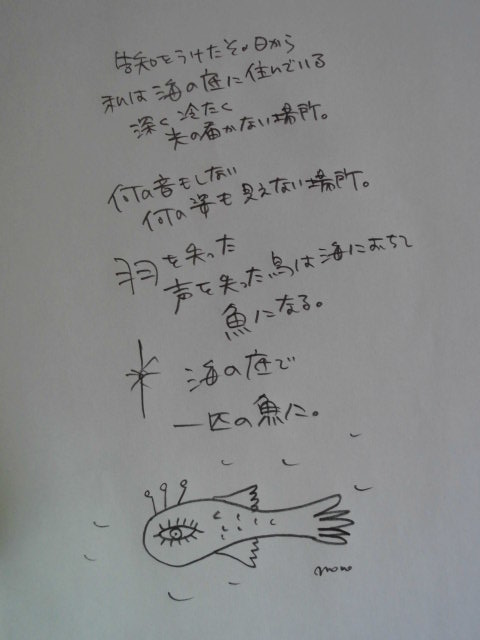 告知をうけたその日から
私は海の底に住んでいる
深く冷たく
光の届かない場所。
何の音もしない
何の姿も見えない場所。
羽を失った
声を失った鳥は海におちて
魚になる。
海の底で
一匹の魚に。
momo